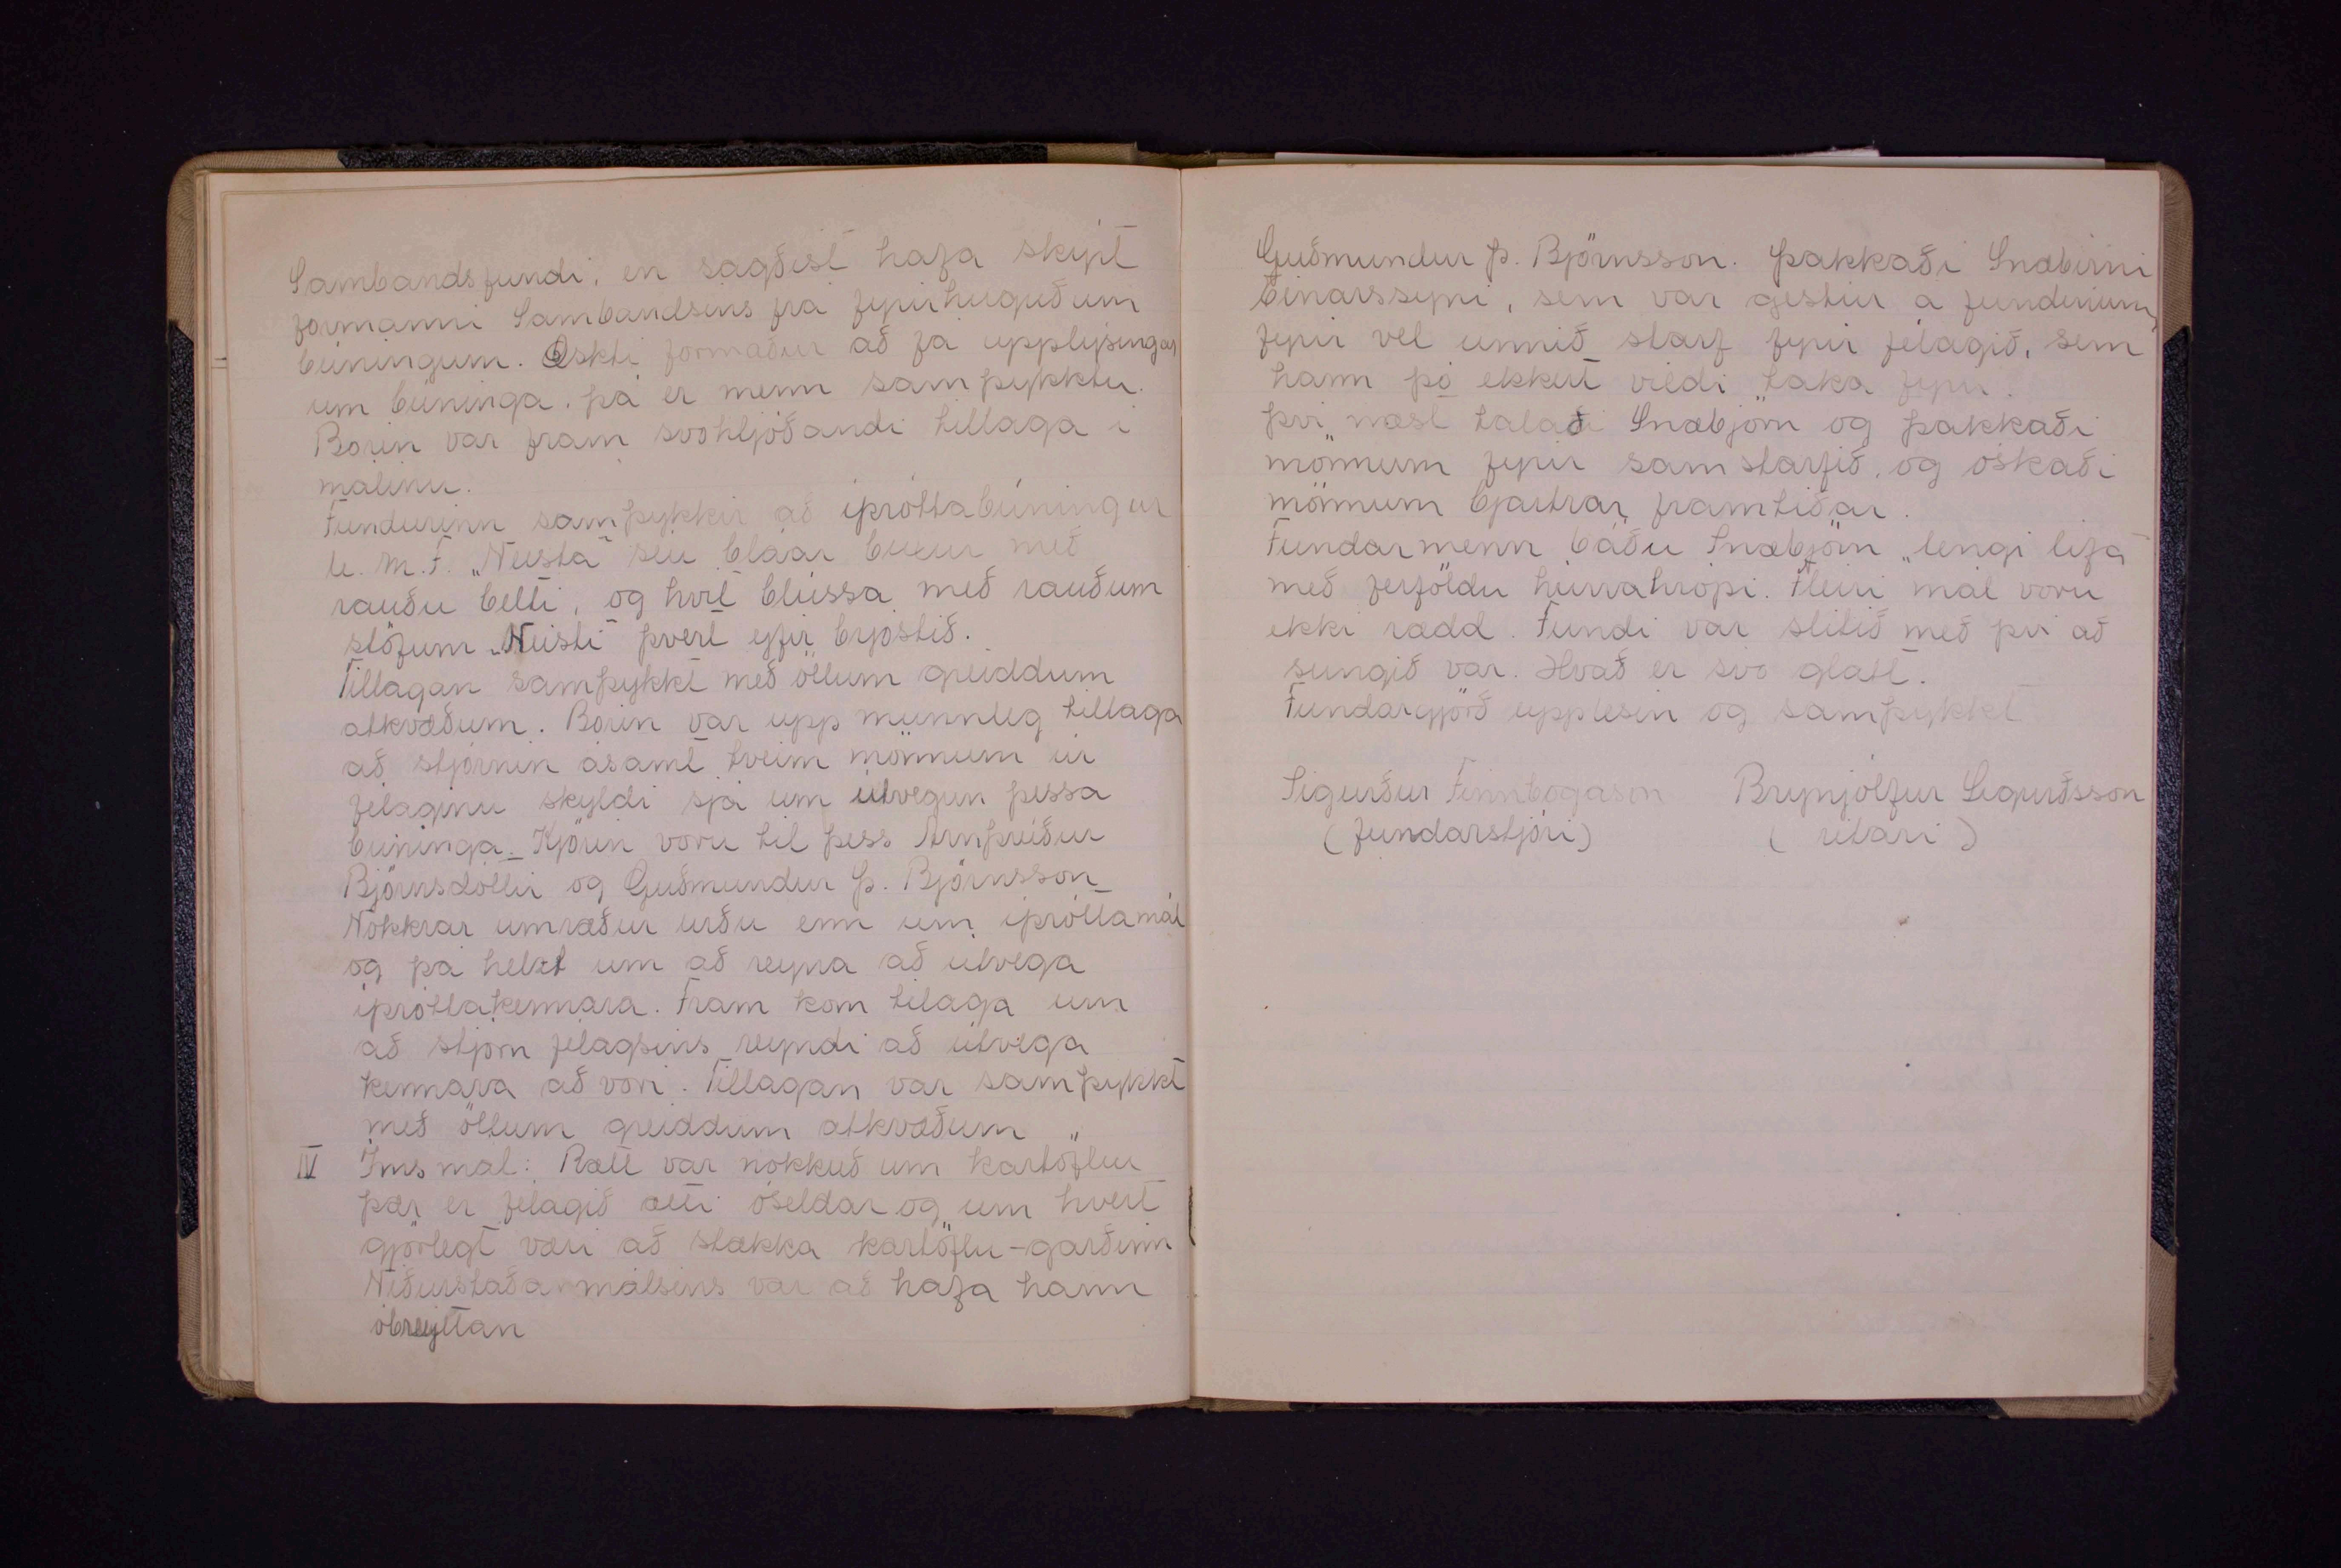 Sambandsfundi, en sagðist hafa skýrt
formanni Sambandsins frá fyrirhuguðum
búningum. Óskti formaður að fá upplýsingar
um búninga. þá er menn samþykktu.
Borin var fram svohljóðandi tillaga í
málinu.
Fundurinn samþykkir að íþróttabúningur
U. M. F. „Neista" séu bláar buxur með
rauðu belti, og hvít blússa með rauðum
stöfum „Neisti" þvert yfir brjóstið.
Tillagan samþykkt með öllum greiddum
atkvæðum. Borin var upp munnleg tillaga
að stjórnin ásamt tveim mönnum úr
félaginu skyldi sjá um útvegun þessa
búninga. Kjörin voru til þess Arnþrúður
Björnsdóttir og Guðmundur Þ. Björnsson
Nokkrar umræður urðu enn um íþróttamál
og þá helzt um að reyna að útvega
íþróttakennara. Fram kom tilaga um
að stjórn félagsins reyndi að útvega
kennara að vori. Tillagan var samþykkt
með öllum greiddum atkvæðum
IV Ýms mál: Rætt var nokkuð um kartöflur
þær er félagið ætti óseldar og um hvert
gjörlegt væri að stækka kartöflu-garðinn
Niðurstaða málsins var að hafa hann
óbreyttan
Guðmundur Þ. Björnsson. Þakkaði Snæbirni
Einarssyni, sem var gestur á fundinum,
fyrir vel unnið starf fyrir félagið, sem
hann þó ekkert vildi taka fyrir.
Því næst talaði Snæbjörn og þakkaði
mönnum fyrir samstarfið, og óskaði
mönnum bjartrar framtíðar.
Fundarmenn báðu Snæbjörn „lengi lifa"
með ferföldu húrrahrópi. Fleiri mál voru
ekki rædd. Fundi var slitið með því að
sungið var. Hvað er svo glatt.
Fundargjörð upplesin og samþykkt
Sigurður Finnbogason Brynjólfur Sigurðsson
(fundarstjóri) (ritari)